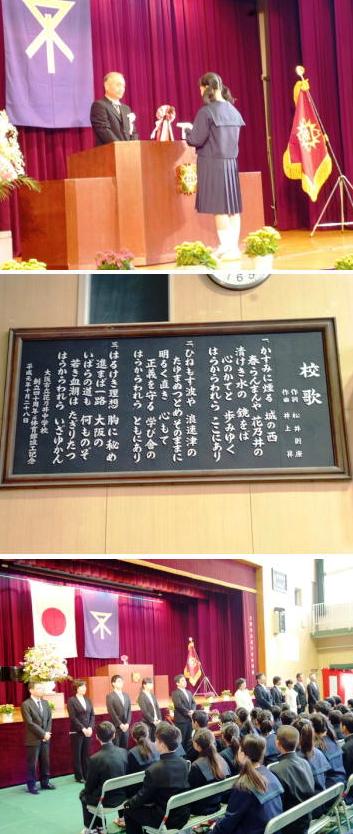 校歌
作詞 松井利彦
作曲 井上昇
一、かすみに煙る 城の西
春らんまんや 花乃井の
清けき水の 鏡をば
心のかてと 歩みゆく
はらからわれら ここにあり
二、ひねもす波や 浪速津の
たゆまぬつとめ そのままに
明るく直き 心もて
正義を守る 学び舎の
はらからわれら ともにあり
三、はるけき理想 胸に秘め
進まば一路 大阪の
いばらの道も 何ものぞ
若き血潮は たぎりたつ
はらからわれら いざゆかん
大阪市立花乃井中学校
創立四十周年・体育館竣工記念
平成元年十月二十八日